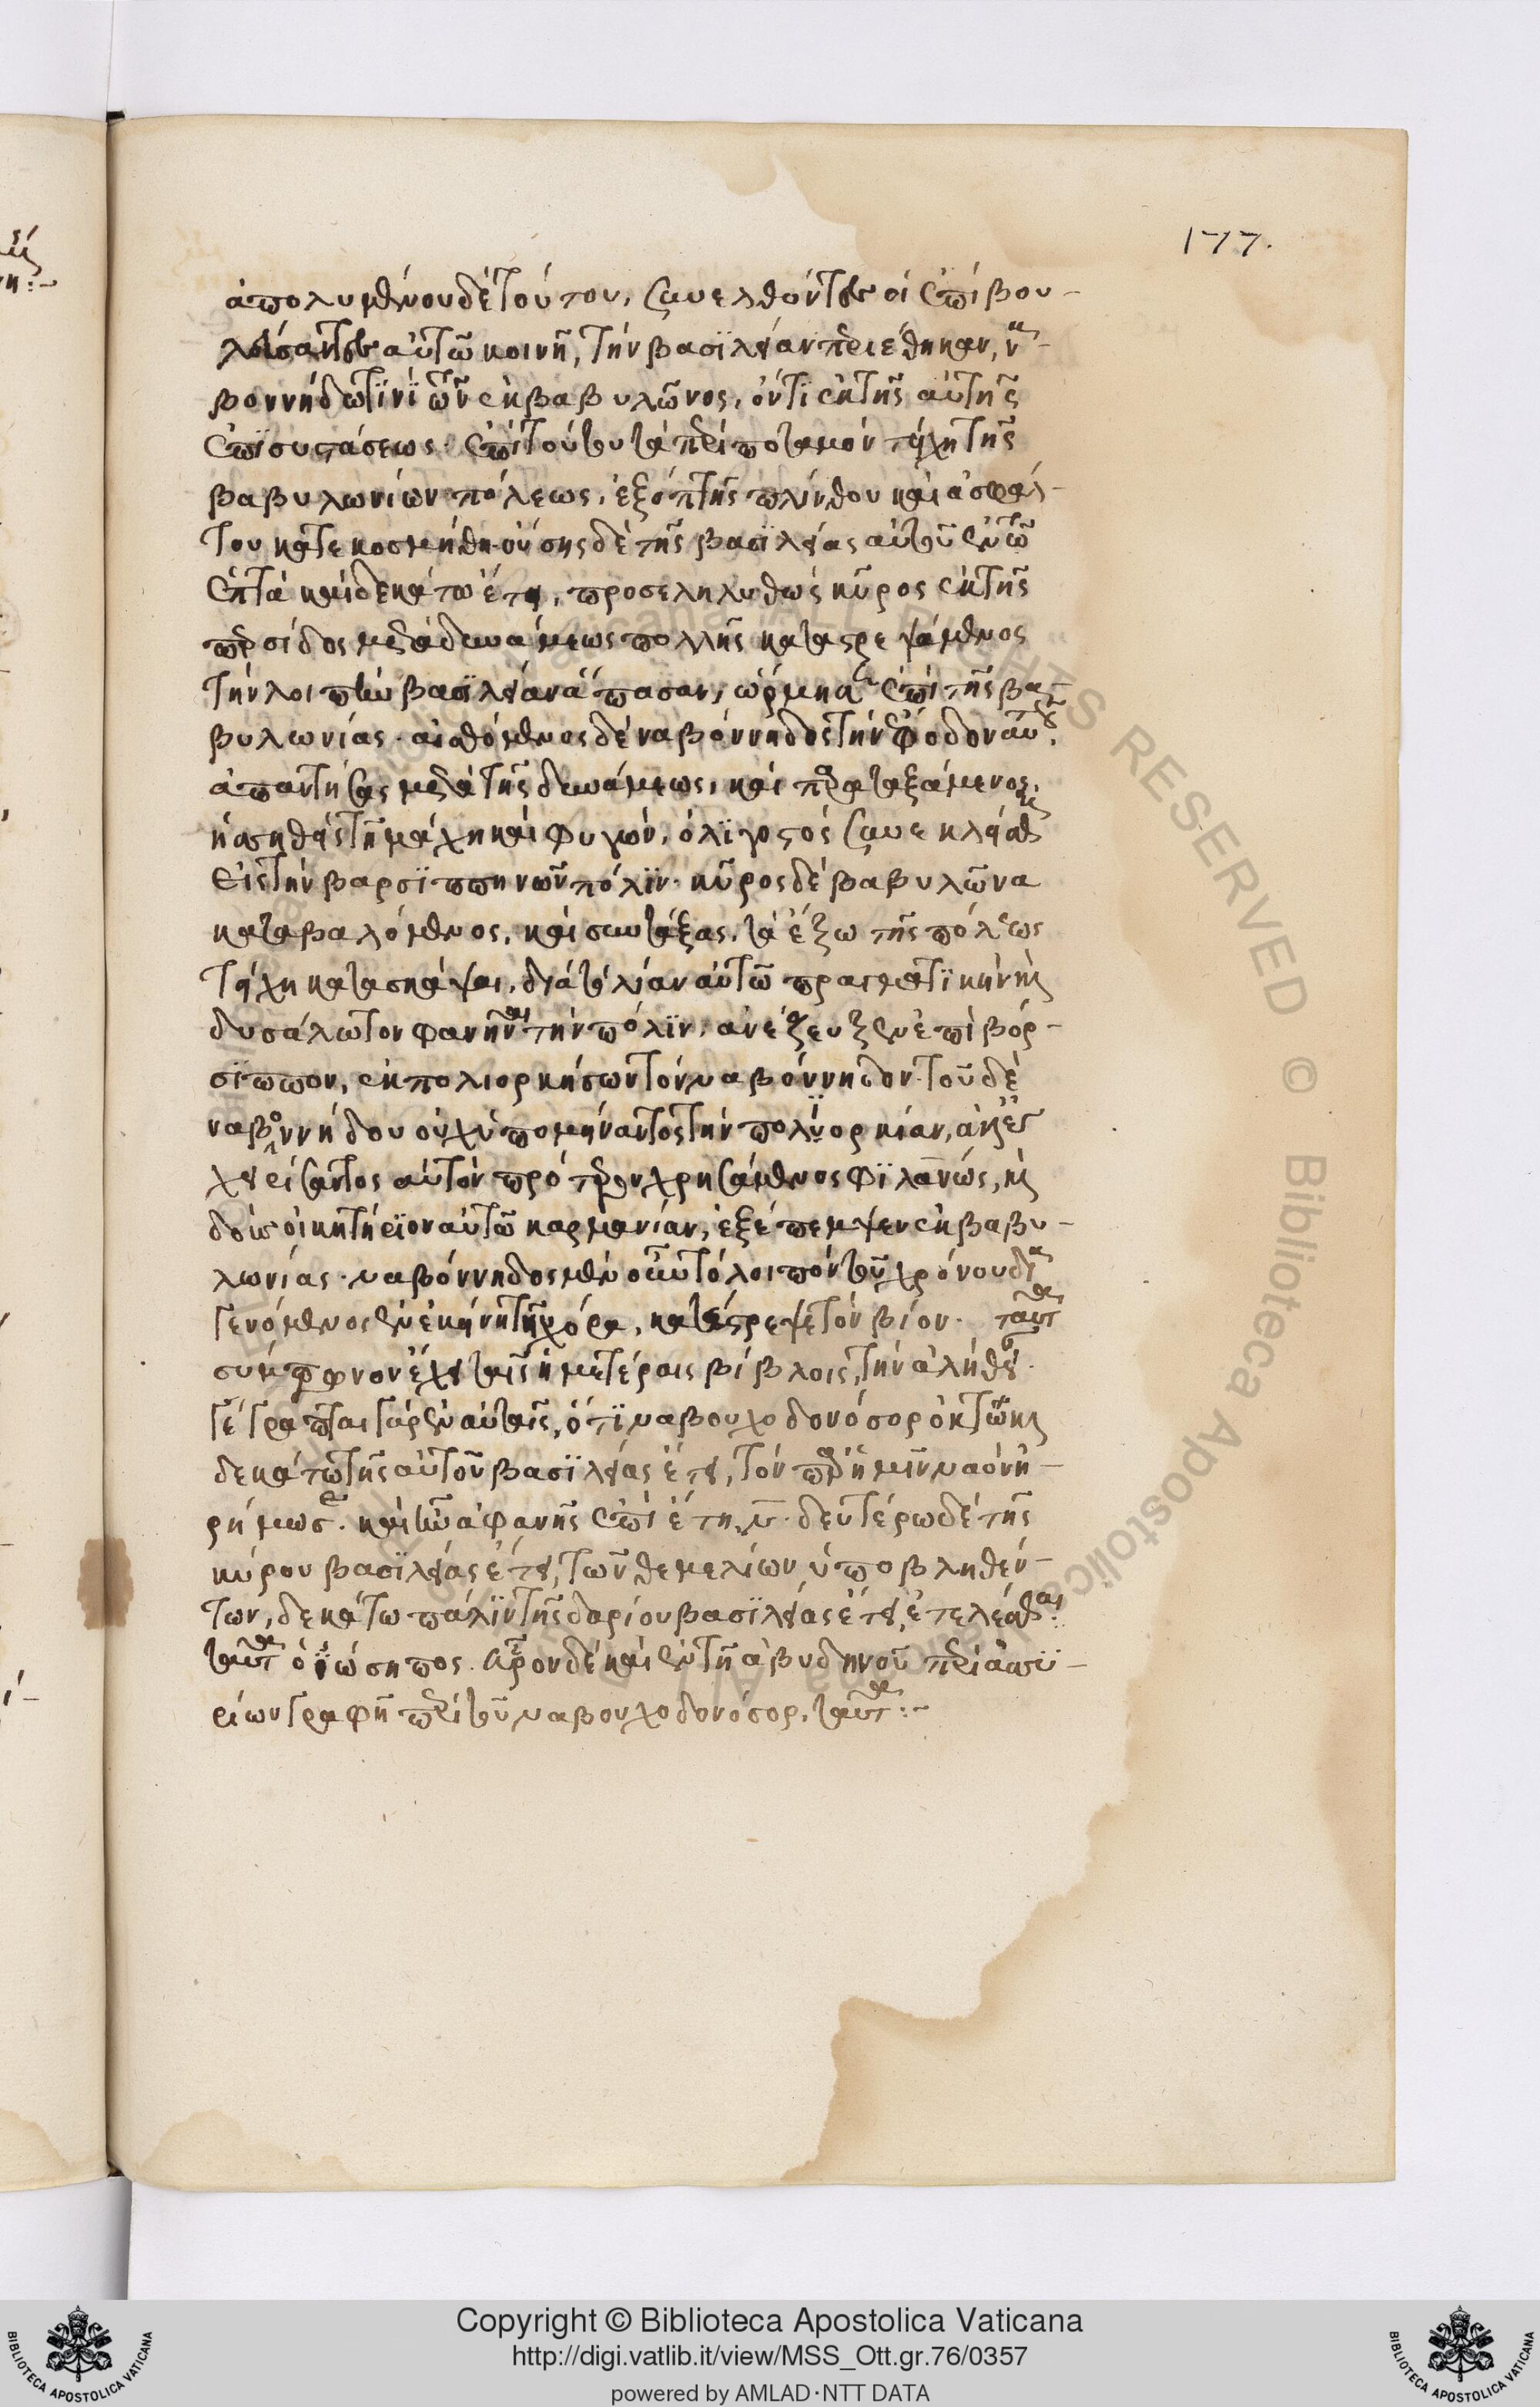 177.
ἀπολυμένου δὲ τούτου, συνελθόντες οἱ ἐπιβου-
λεύσαντες αὐτῶ κοινῆ, τὴν βασιλείαν περιέθηκαν, να-
βοννήδω τινὶ τῶν ἐκ βαβυλῶνος, ὄντι ἐκ τῆς αὐτῆς
ἐπισυστάσεως. ἐπὶ τούτου τὰ περὶ ποταμὸν τείχη τῆς
βαβυλωνίων πόλεως, ἐξ ὀπτῆς πλίνθου καὶ ἀσφάλ-
του κατεκοσμήθη. οὔσης δὲ τῆς βασιλείας αὐτοῦ ἐν τῶ
ἑπτὰ καὶ δεκάτω ἔτει, προσεληλυθὼς κῦρος ἐκ τῆς
περσίδος μετὰ δυνάμεως πολλῆς καταστρεψάμενος
τὴν λοιπὴν βασιλείαν ἅπασαν, ὥρμησεν ἐπὶ τῆς βα-
βυλωνίας. αἰσθόμενος δὲ ναβόννηδος τὴν ἔφοδον αὐτοῦ,
ἀπαντήσας μετὰ τῆς δυνάμεως, καὶ παραταξάμενος,
ἡττηθεὶς τῆ μάχη καὶ φυγὼν, ὀλιγοστὸς συνεκλείσθη
εἰς τὴν βαρσιππηνῶν πόλιν. κῦρος δὲ βαβυλῶνα
καταβαλόμενος, καὶ συντάξας, τὰ ἔξω τῆς πόλεως
τείχη κατασκάψαι, διὰ τὸ λίαν αὐτῶ πραγματικὴν καὶ
δυσάλωτον φανῆναι τὴν πόλιν, ἀνέζευξεν ἐπὶ βόρ-
σιππον, ἐκπολιορκήσων τὸν ναβόννηδον. τοῦ δὲ
ναβοννήδου οὐχ ὑπομείναντος τὴν πολιορκίαν, ἀλλ'
χειρίσαντος αὐτὸν πρότερον χρησάμενος φιλανως, καὶ
δοὺς οἰκητήριον αὐτῶ καρμανίαν, ἐξέπεμψεν ἐκ βαβυ-
λωνίας. ναβόννηδος μὲν οὖν τὸ λοιπὸν τοῦ χρόνου δια
γενόμενος ἐν ἐκείνη τῆ χόρα, κατέστρεψε τὸν βίον. ταῦτα
σύμφωνον ἔχει ταῖς ἡμετέραις βίβλοις, τὴν ἀλήθειαν.
γέγραπται γὰρ ἐν αὐταῖς, ὅτι ναβουχοδονόσορ ὀκτῶ καὶ
δεκάτω τῆς αὐτοῦ βασιλείας ἔτει, τὸν παρ' ἡμῖν ναὸν ἠ-
ρήμωσεν. καὶ ἦν ἀφανὴς ἐπὶ ἔτη ν. δευτέρω δὲ τῆς
κύρου βασιλείας ἔτει, τῶν θεμελίων ὑποβληθέν-
των, δεκάτω πάλιν τῆς δαρίου βασιλείας ἔτει, ἐτελέσθαι:
ταῦτα ὁ ἰώσηπος. εὗρον δὲ καὶ ἐν τῆ ἀβυδηνοῦ περὶ ἀσσυ-
ρίων γραφῆ περὶ τοῦ ναβουχοδονόσορ, ταῦτα:-
Copyright © Biblioteca Apostolica Vaticana
http://digi.vatlib.it/view/MSS_Ott.gr.76/0357
powered by AMLAD·NTT DATA